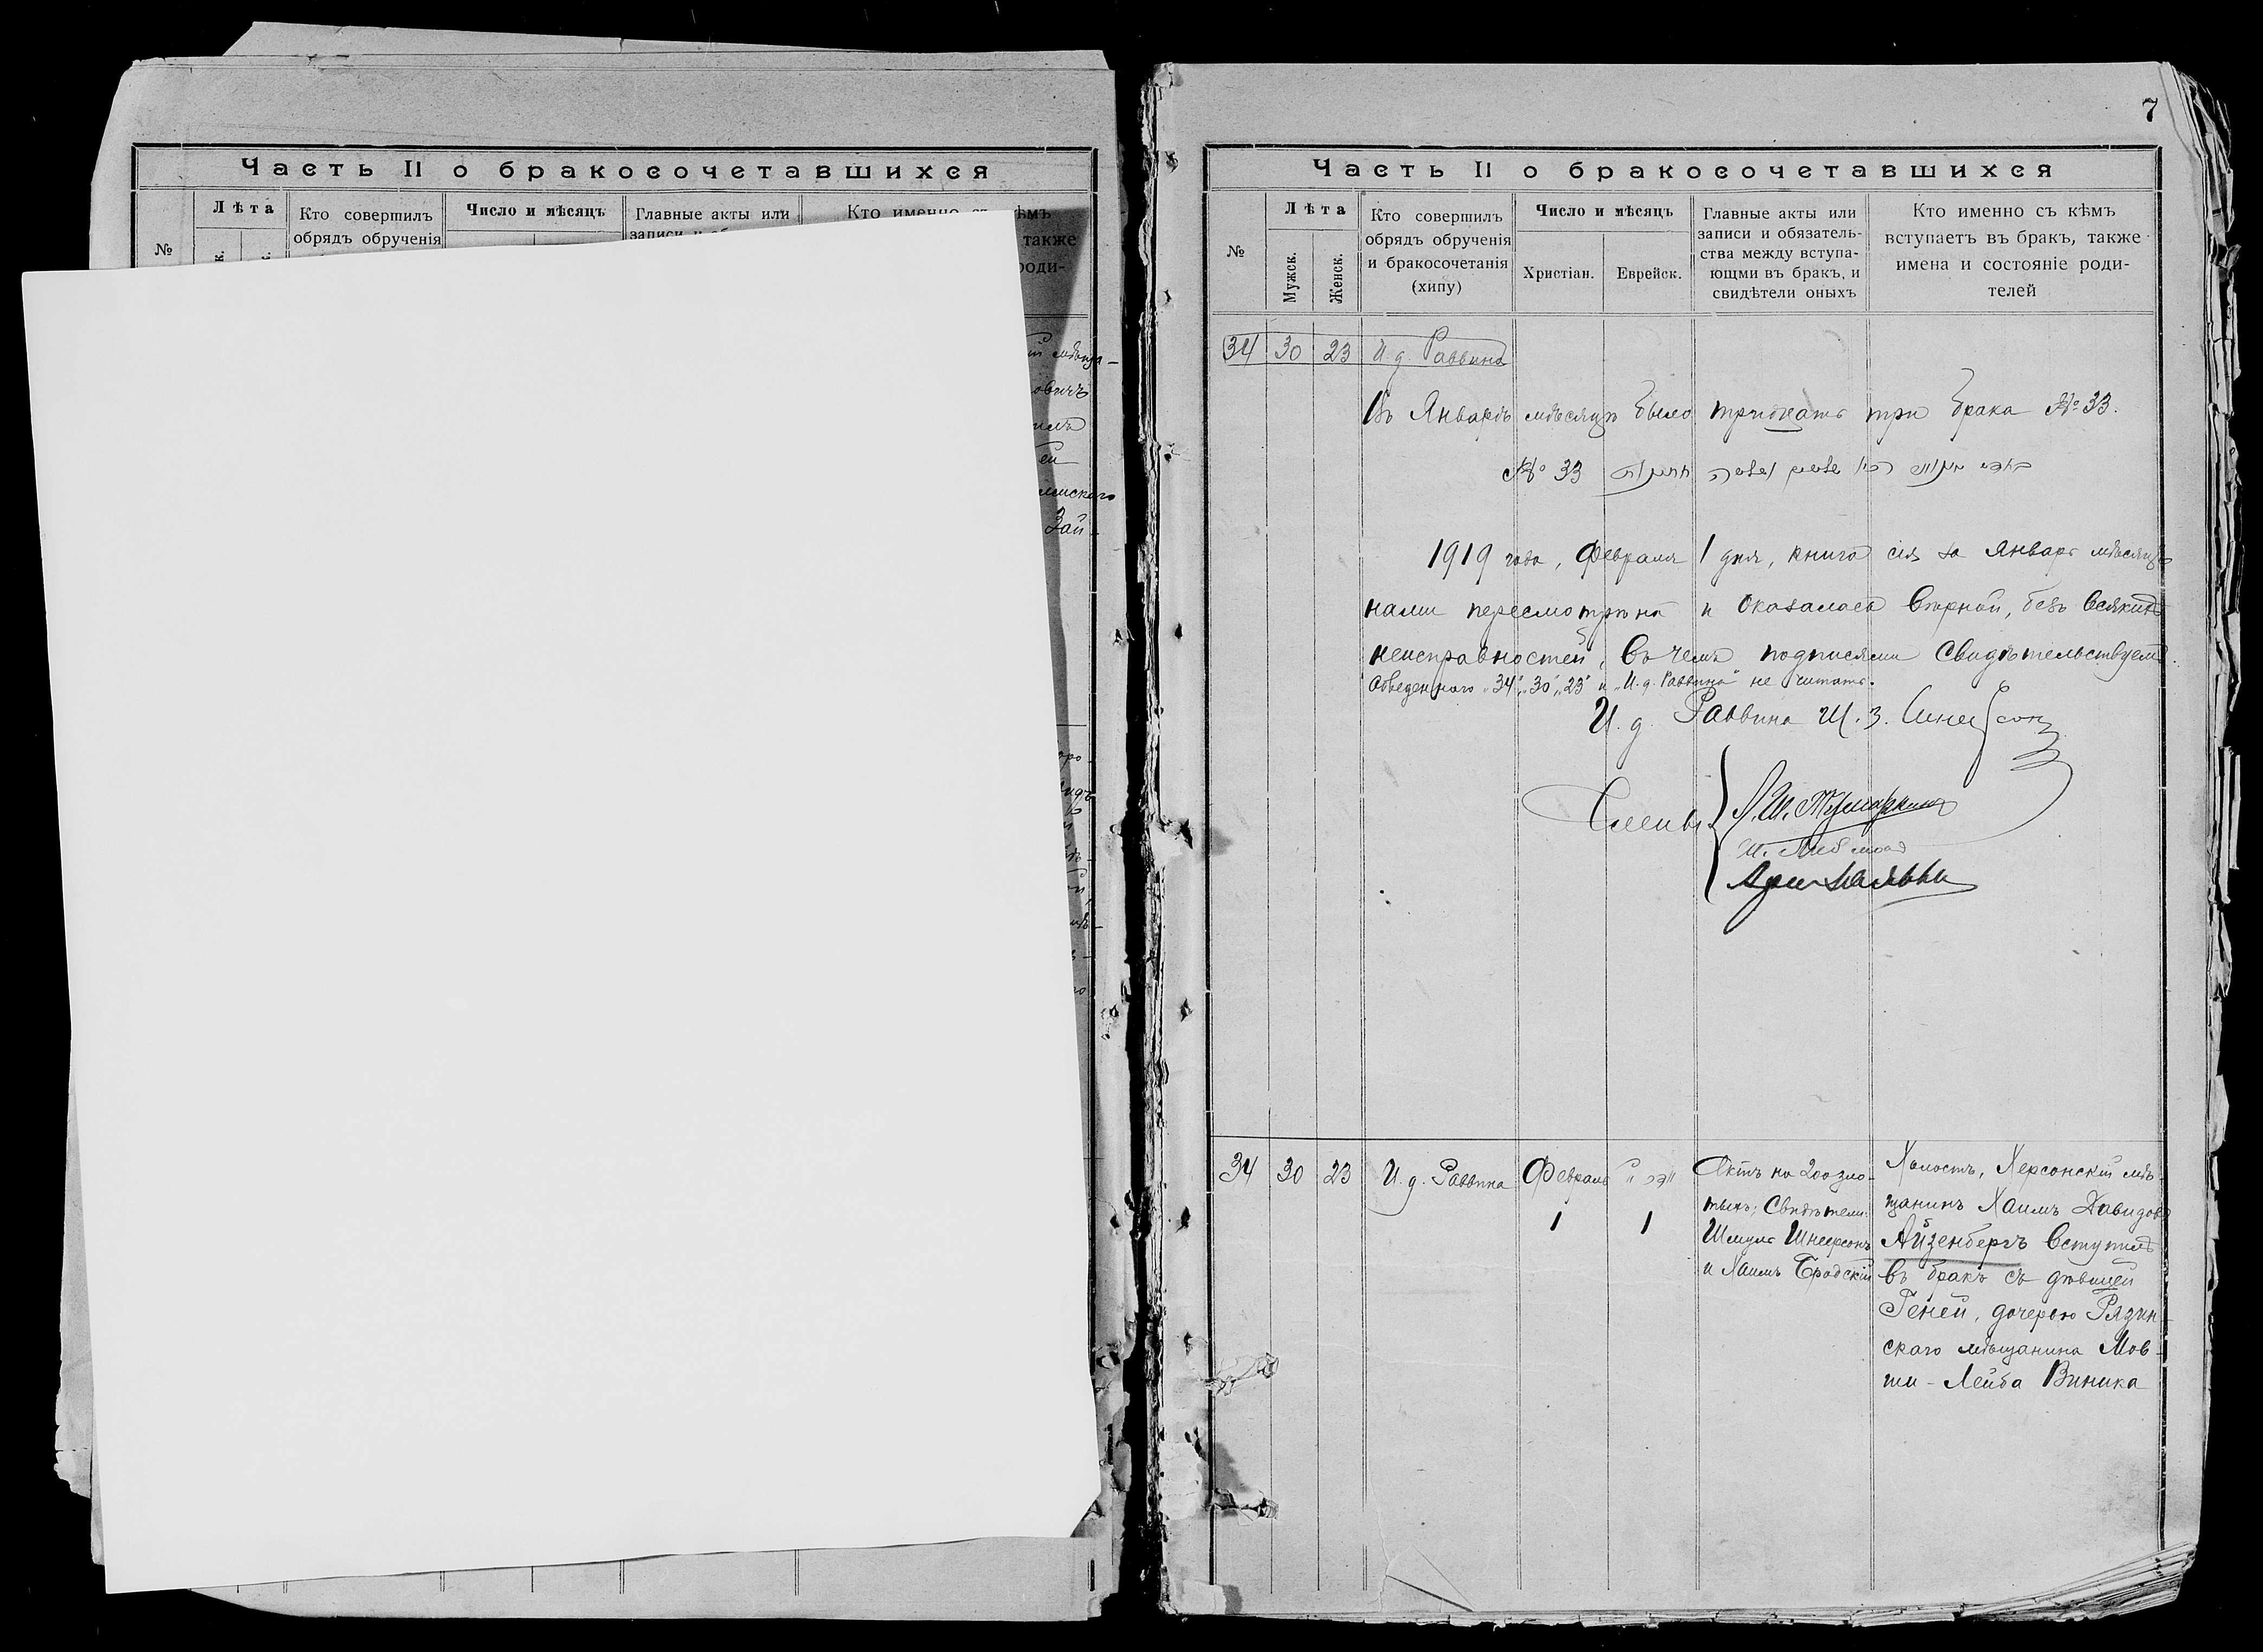 Часть II о бракосочетавшихся
№
Лѣта
Кто совершилъ
обрядъ обрученія
Число и мѣсяцъ
Главные акты или
записи и
Кто именно съ кѣмъ
также
роди-
овичъ
ей
Зай-
7
Часть II о бракосочетавшихся
№
Лѣта
Мужск.
Женск.
Кто совершилъ
обрядъ обрученія
и бракосочетанія
(хипу)
Число и мѣсяцъ
Христіан.
Еврейск.
Главные акты или
записи и обязатель-
ства между вступа-
ющми въ бракъ, и
свидѣтели оныхъ
Кто именно съ кѣмъ
вступаетъ въ бракъ, также
имена и состояніе роди-
телей
34 30 23 И. д. Раввина
Въ Январѣ мѣсяцѣ было тридцать три брака № 33.
№ 33
1919 года, Февраля 1 дня, книга сія за Январь мѣсяцъ
нами пересмотрѣна и оказалась вѣрной, безъ всякихъ
неисправностей, въ чемъ подписями свидѣтельствуемъ.
Обведенного „34", „30", „23" и „И. д. Раввина" не читать.
И. д. Раввина Ш. З. Шнеерсон
Члены
34 30 23 И. д. Раввина
Февраль
1
אדר
1
Актъ на 200 зло-
тыхъ; Свидѣтели:
Шмуль Шнеерсонъ
и Хаимъ Бродскій
Холостъ, Херсонскій мѣ-
щанинъ Хаимъ Давидовъ
Айзенбергъ вступилъ
въ бракъ съ дѣвицей
Геней, дочерью Рязан-
скаго мѣщанина Мов-
ши-Лейба Виника